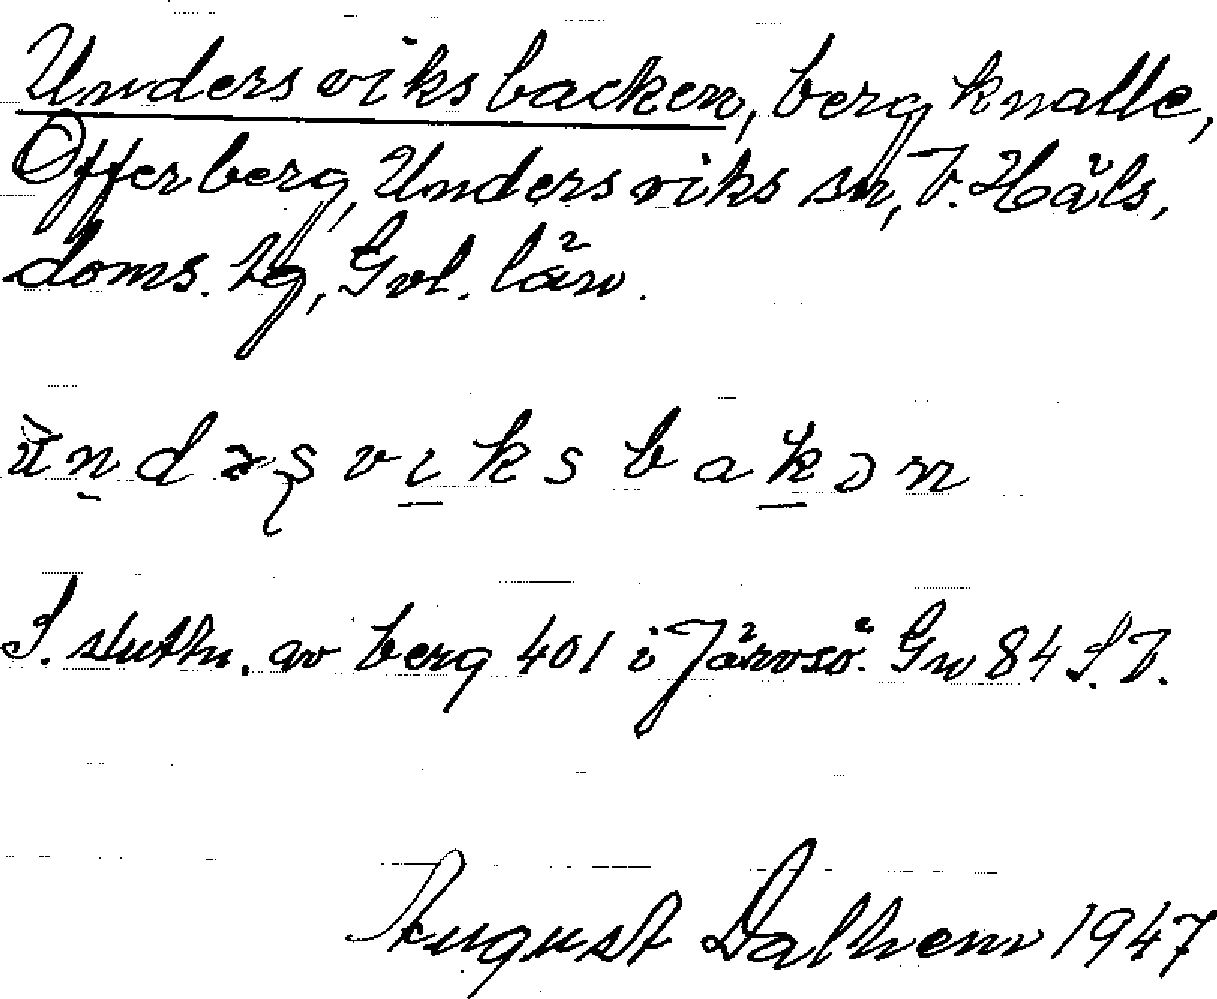 Undersviksbacken, bergknalle,
Offerberg, Undersviks sn, V. Häls,
doms. hg, Gvl. län.
ùndəʂviksbakən
S. sluttn. av berg 401 i Järvsö. Gw 84 S.V.
August Dalhem 1947